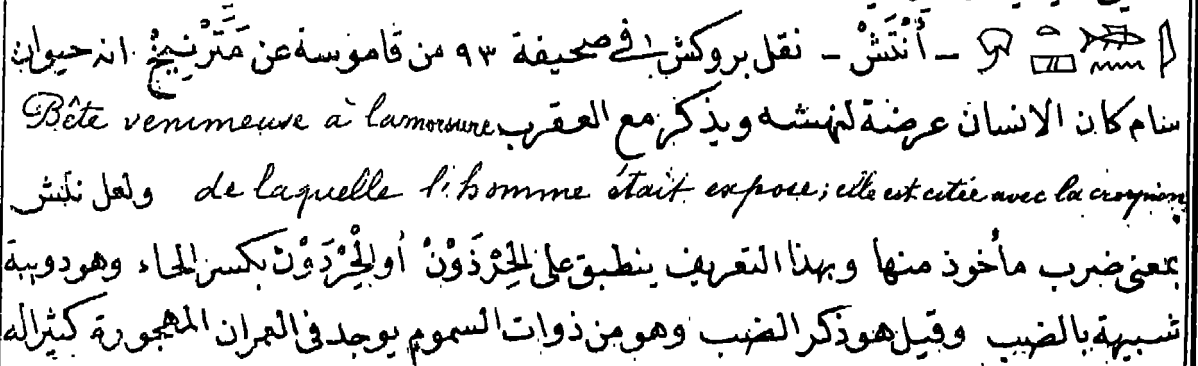 – أَنْتَشْ – نقل بروكش في صحيفة ٩٣ من قاموسة عن مَتَّرْنِيخْ انه حيوان
سام كان الانسان عرضة لنهشه ويذكر مع العقرب Bête venimeuse à la morsure
de laquelle l'homme était exposé; elle est citée avec la scorpion ولعل نتش
بمعنى ضرب مأخوذ منها وبهذا التعريف ينطبق على الحِرْذَوْنْ أو الحِرْدَوْنْ بكسر الحاء وهو دويبة
شبيهة بالضب وقيل هو ذكر الضب وهو من ذوات السموم يوجد في العمران المهجورة كثيرا له